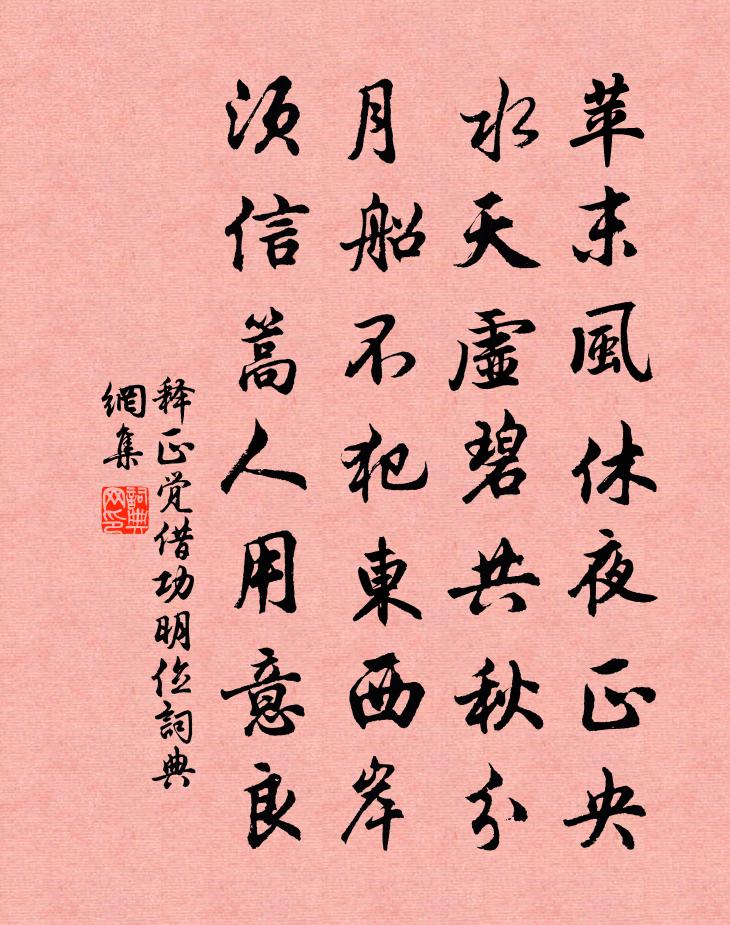 苹末風休夜正央
水天虛碧共秋分
月船不犯東西岸
須信篙人用意良
释正觉借功明位詞典
網集
詞典
网印